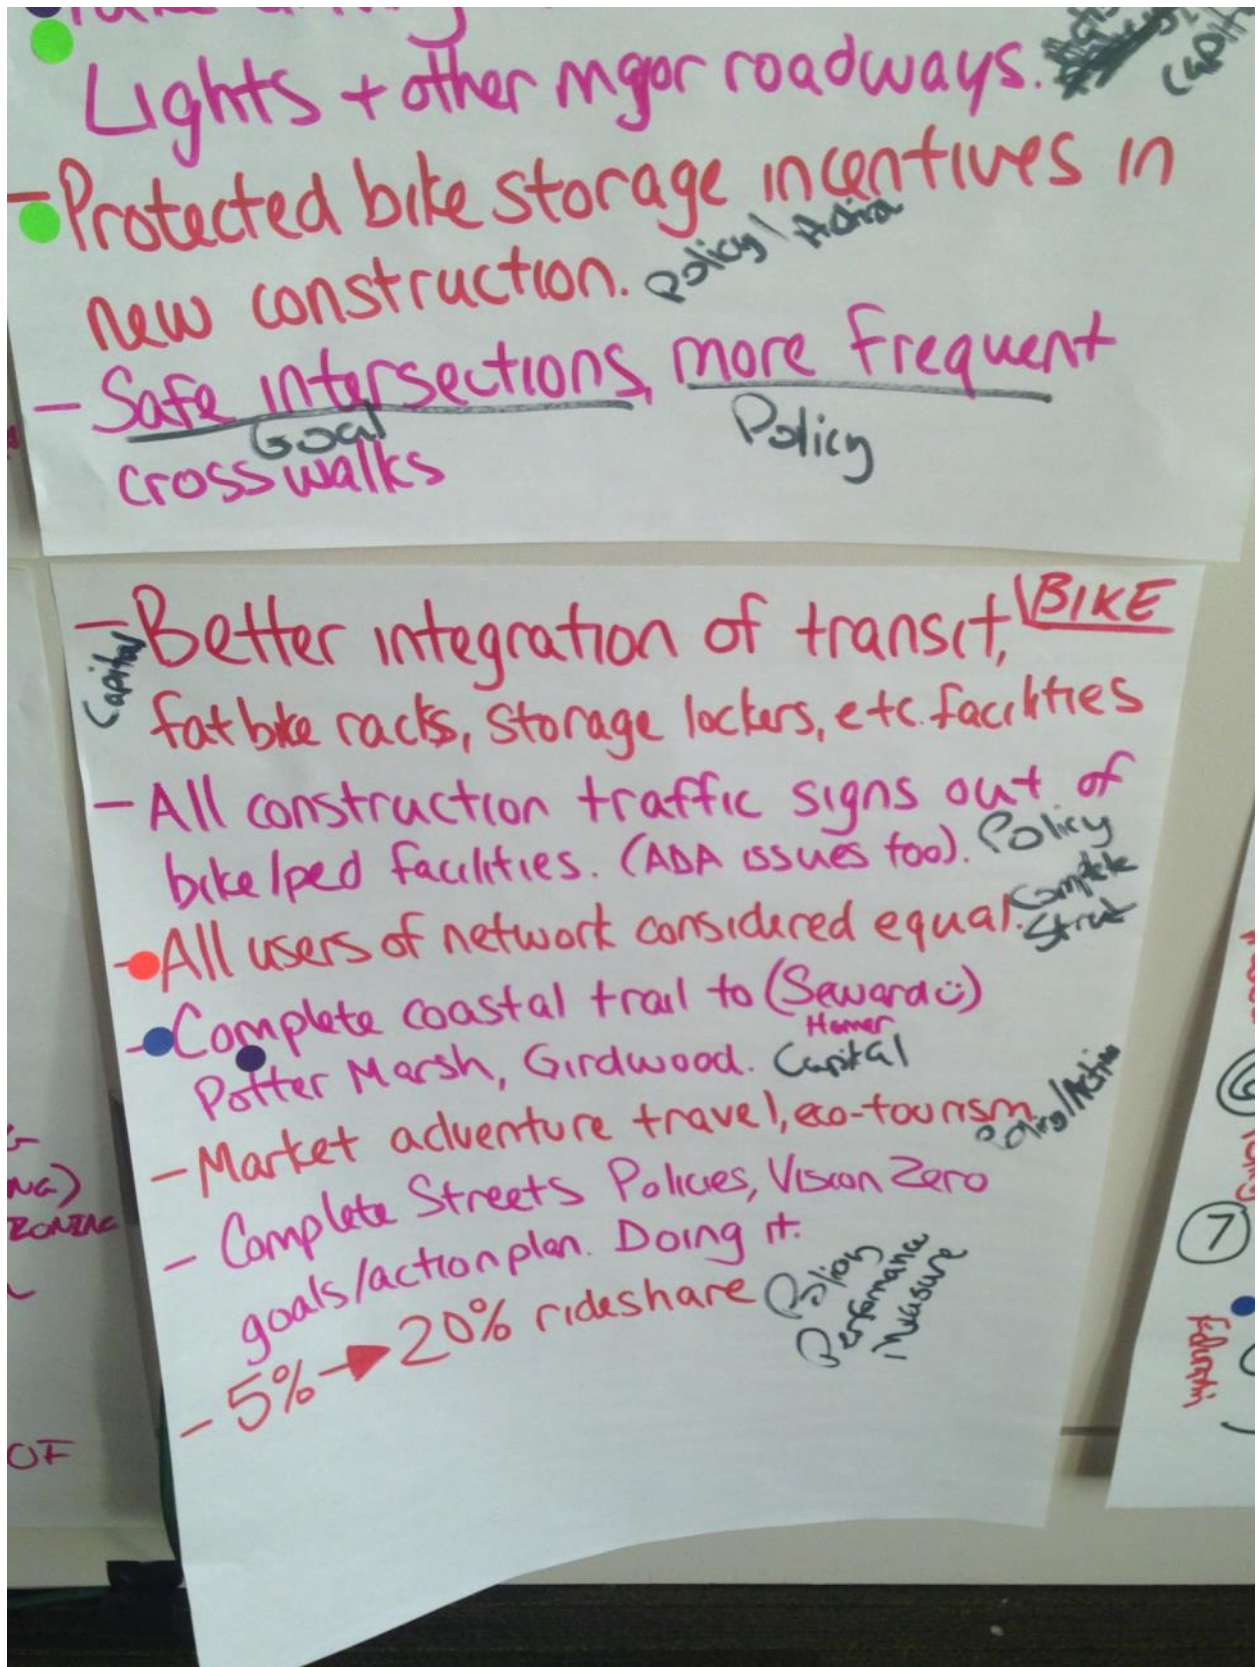 Lights + other major roadways.
- Protected bike storage incentives in
new construction. Policy / Action
- Safe intersections, more frequent
Goal Policy
crosswalks
BIKE
- Better integration of transit,
Capital
fat bike racks, storage lockers, etc. facilities
- All construction traffic signs out of
bike/ped facilities. (ADA issues too). Policy
- All users of network considered equal. Complete
Street
- Complete coastal trail to (Seward
Homer
Potter Marsh, Girdwood. Capital
- Market adventure travel, eco-tourism Policy/Action
- Complete Streets Policies, Vision Zero
goals/action plan. Doing it.
- 5% → 20% rideshare Policy
Performance
Measure
ZONING
OF
7